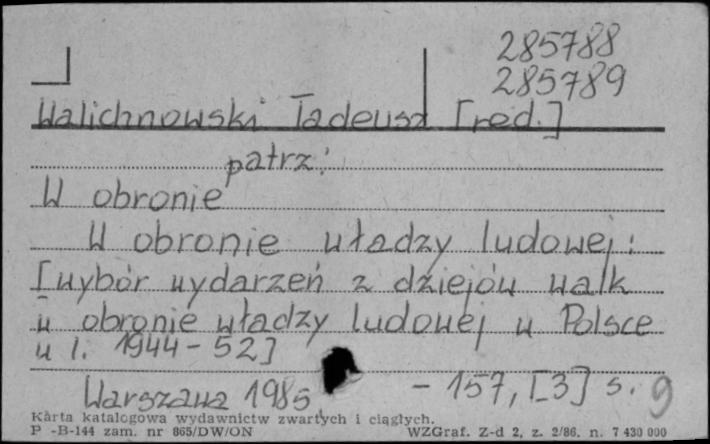 285788
285789
Walichnowski Tadeusz [red.]
patrz:
W obronie
W obronie władzy ludowej:
[wybór wydarzeń z dziejów walk
w obronie władzy ludowej w Polsce
w l. 1944-52]
Warszawa 1985 - 157, [3] s. 9
Karta katalogowa wydawnictw zwartych i ciągłych.
P -B-144 zam. nr 865/DW/ON WZGraf. Z-d 2, z. 2/86. n. 7 430 000